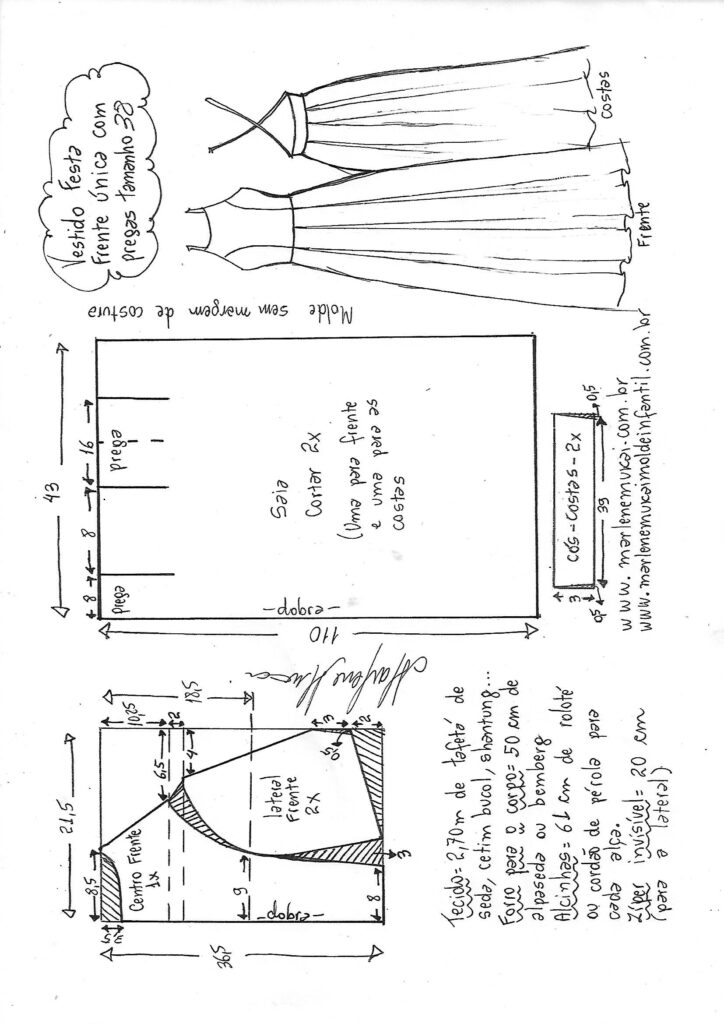 Vestido Festa
Frente única com
pregas tamanho 38
Costas
Frente
Molde sem margem de costura
43
8
8
16
prega
prega
Saia
Cortar 2x
(Uma para frente
e uma para as
costas
-dobra-
110
cós-costas-2x
39
3
0,5
0,5
www.marlenemukai.com.br
www.marlenemukaimoldeinfantil.com.br
Marlene Mukai
21,5
8,5
6,5
10,25
2
18,5
4
Centro Frente
1x
lateral
Frente
2x
3
0,5
2
9
8
3
-dobra-
36,5
Tecido= 2,70m de tafetá de
seda, cetim bucol, shantung...
Forro para o corpo= 50 cm de
alpaseda ou bemberg
Alcinhas= 61 cm de roloté
ou cordão de pérola para
cada alça.
Ziper invisível= 20 cm
(para a lateral)